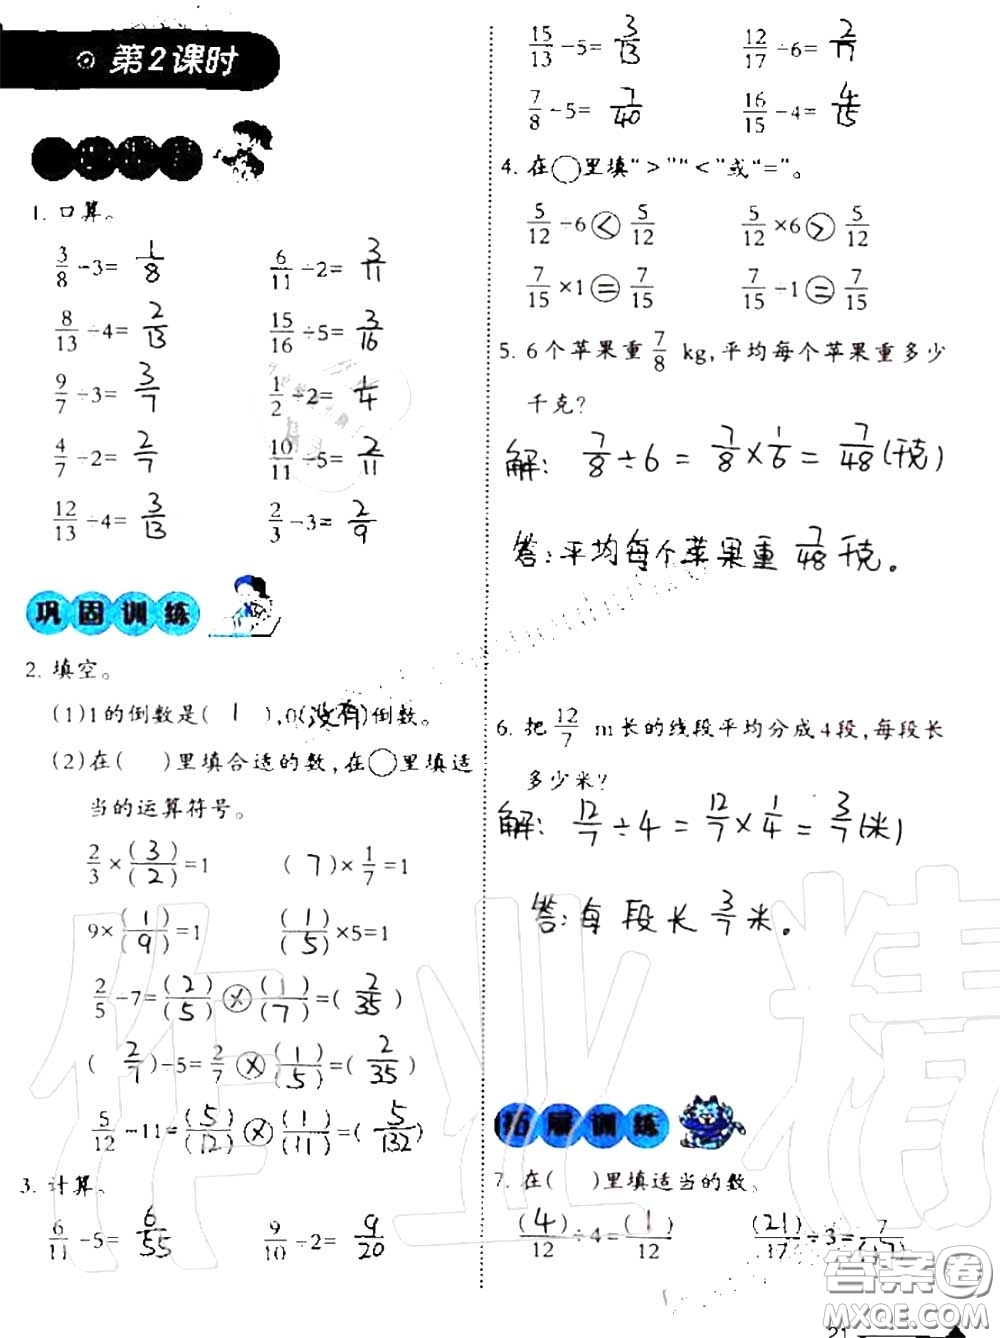 第2课时
1. 口算。
3/8 -3= 1/8    6/11 ÷2= 3/11
8/13 ÷4= 2/13    15/16 ÷5= 3/16
9/7 ÷3= 3/7    1/2 ÷2= 1/4
4/7 ÷2= 2/7    10/11 ÷5= 2/11
12/13 ÷4= 3/13    2/3 -3= 2/9
巩固训练
2. 填空。
(1)1的倒数是( 1 ),0(没有)倒数。
(2)在( )里填合适的数,在○里填适
当的运算符号。
2/3 × (3)/(2) =1    (7)× 1/7 =1
9× (1)/(9) =1    (1)/(5) ×5=1
2/5 -7= (2)/(5) ⊗ (1)/(7) =( 2/35 )
( 2/7 )-5= 2/7 ⊗ (1)/(5) =( 2/35 )
5/12 -11= (5)/(12) ⊗ (1)/(11) =( 5/132 )
3. 计算。
6/11 -5= 6/55    9/10 ÷2= 9/20
15/13 -5= 3/13    12/17 ÷6= 2/17
7/8 -5= 7/40    16/15 -4= 4/15
4. 在○里填“>”“<”或“=”。
5/12 ÷6 < 5/12    5/12 ×6 > 5/12
7/15 ×1 = 7/15    7/15 -1 = 7/15
5. 6个苹果重 7/8 kg,平均每个苹果重多少
千克?
解: 7/8 ÷6 = 7/8 × 1/6 = 7/48 (千克)
答:平均每个苹果重 7/48 千克。
6. 把 12/7 m长的线段平均分成4段,每段长
多少米?
解: 12/7 ÷4 = 12/7 × 1/4 = 3/7 (米)
答:每段长 3/7 米。
拓展训练
7. 在( )里填适当的数、
(4)/12 ÷4= (1)/12    (21)/17 ÷3= 7/(17)
21
作业精
答案圈
MXQE.COM